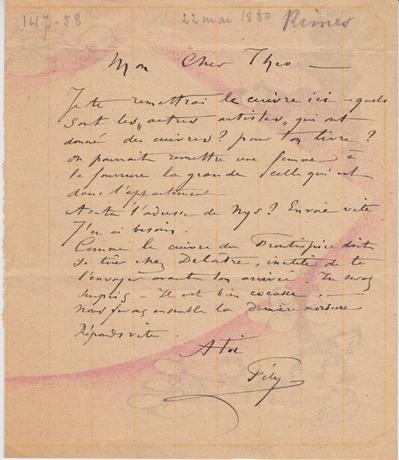 147-58 22 mai 1880 Rimes
Mon Cher Théo —
Je te remettrai le cuivre ici - quels
sont les „autres artistes" qui ont
donné des cuivres? pour ton livre?
on pourrait remettre une femme à
la fourrure la grande celle qui est
dans l'appartement
As-tu l'adresse de Nys? Envoie vite
J'en ai besoin.
Comme le cuivre du Frontispice doit
se tirer chez Delatre, inutile de te
l'envoyer avant ton arrivée. Tu seras
surpris - Il est bien cocasse. —
Nous ferons ensemble la dernière morsure
Réponds vite.
A toi
Fély